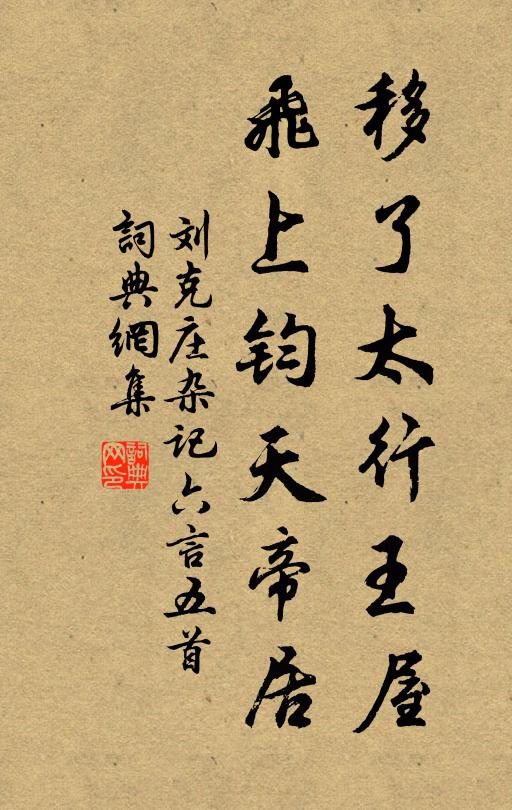 移了太行王屋
飞上钧天帝居
刘克庄杂记六言五首
詞典網集
詞典网印